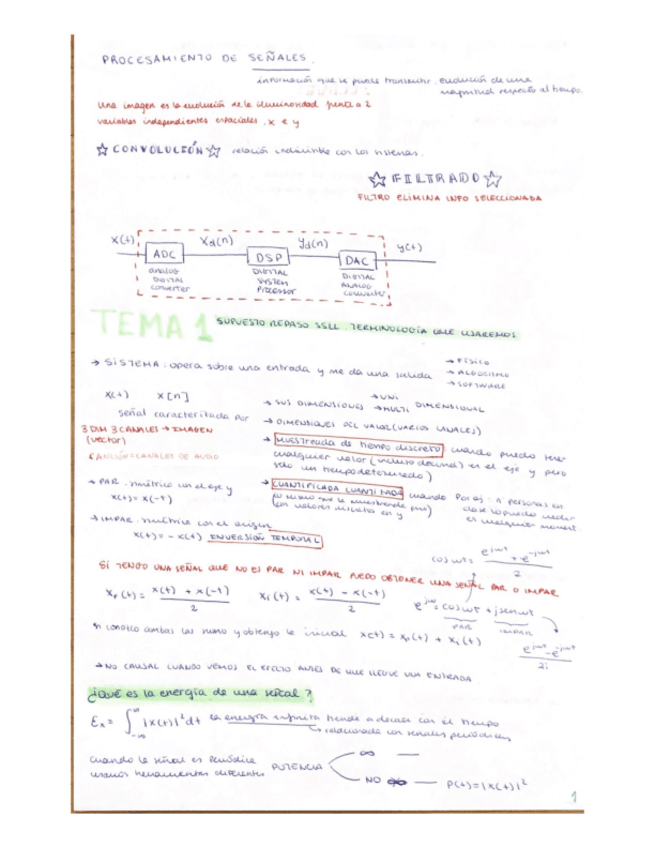 PROCESAMIENTO DE SEÑALES.
información que se puede transmitir, evolución de una
magnitud respecto al tiempo.
Una imagen es la evolución de la iluminosidad frente a 2
variables independientes espaciales, x e y
☆ CONVOLUCIÓN ☆ relación indisoluble con los sistemas.
☆ FILTRADO ☆
FILTRO ELIMINA INFO SELECCIONADA
x(t) ADC Xd(n) DSP Yd(n) DAC y(t)
analog DIGITAL converter
DIGITAL SYSTEM Processor
DIGITAL ANALOG converter
TEMA 1 SUPUESTO REPASO SSLL. TERMINOLOGÍA QUE USAREMOS
→ SISTEMA: opera sobre una entrada y me da una salida
→ FÍSICO
→ ALGORITMO
→ SOFTWARE
x(t) x[n]
señal caracterizada por
→ SUS DIMENSIONES
→ UNI
→ MULTI DIMENSIONAL
→ DIMENSIONES DEL VALOR (VARIOS CANALES)
3 DIM 3 CANALES → IMAGEN
(vector)
CANCIÓN 2 CANALES DE AUDIO
→ MUESTREADA de tiempo discreto: cuando puedo tener
cualquier valor (incluso decimal) en el eje y pero
solo un tiempo determinado)
→ CUANTIFICADA CUANTIZADA cuando
(lo mismo que la muestreada pero
con valores discretos en y)
Por ej. n personas en
clase lo puedo medir
en cualquier moment
→ PAR. simétrica con el eje y
x(t) = x(-t)
→ IMPAR. simétrica con el origen
x(t) = - x(t) INVERSIÓN TEMPORAL
cos ωt = e^jωt + e^-jωt / 2
SI TENGO UNA SEÑAL QUE NO ES PAR NI IMPAR PUEDO OBTENER UNA SEÑAL PAR O IMPAR
xp(t) = x(t) + x(-t) / 2 xi(t) = x(t) - x(-t) / 2 e^jωt = cos ωt + j sen ωt
PAR IMPAR
e^jωt - e^-jωt / 2i
si conozco ambas las sumo y obtengo la inicial x(t) = xp(t) + xi(t)
→ NO CAUSAL CUANDO VEMOS EL EFECTO ANTES DE QUE LLEGUE UNA ENTRADA
¿Qué es la energía de una señal?
Ex = ∫-∞ ∞ |x(t)|² dt la energía infinita tiende a decaer con el tiempo
↳ relacionada con señales periódicas
cuando la señal es periódica
usamos herramientas diferentes
POTENCIA
∞ —
NO ∞ — P(t) = |x(t)|²
1